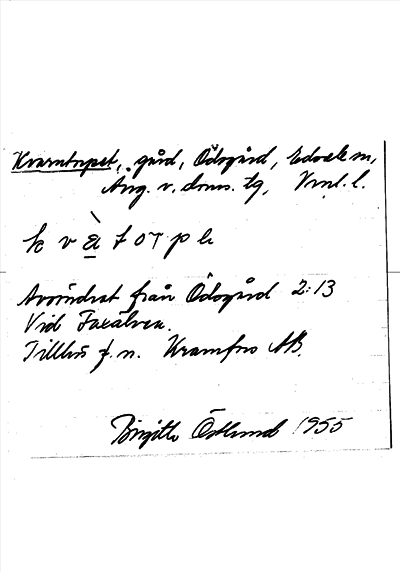 Kvarntorpet, gård, Ödsgård, Edsele sn,
Ång. v. doms. tg, Vnl. l.
k v à t o r p e
Avsöndrat från Ödsgård 2:13
Vid Faxälven.
Tillhör f. n. Kramfors AB.
Birgitta Östlund 1955